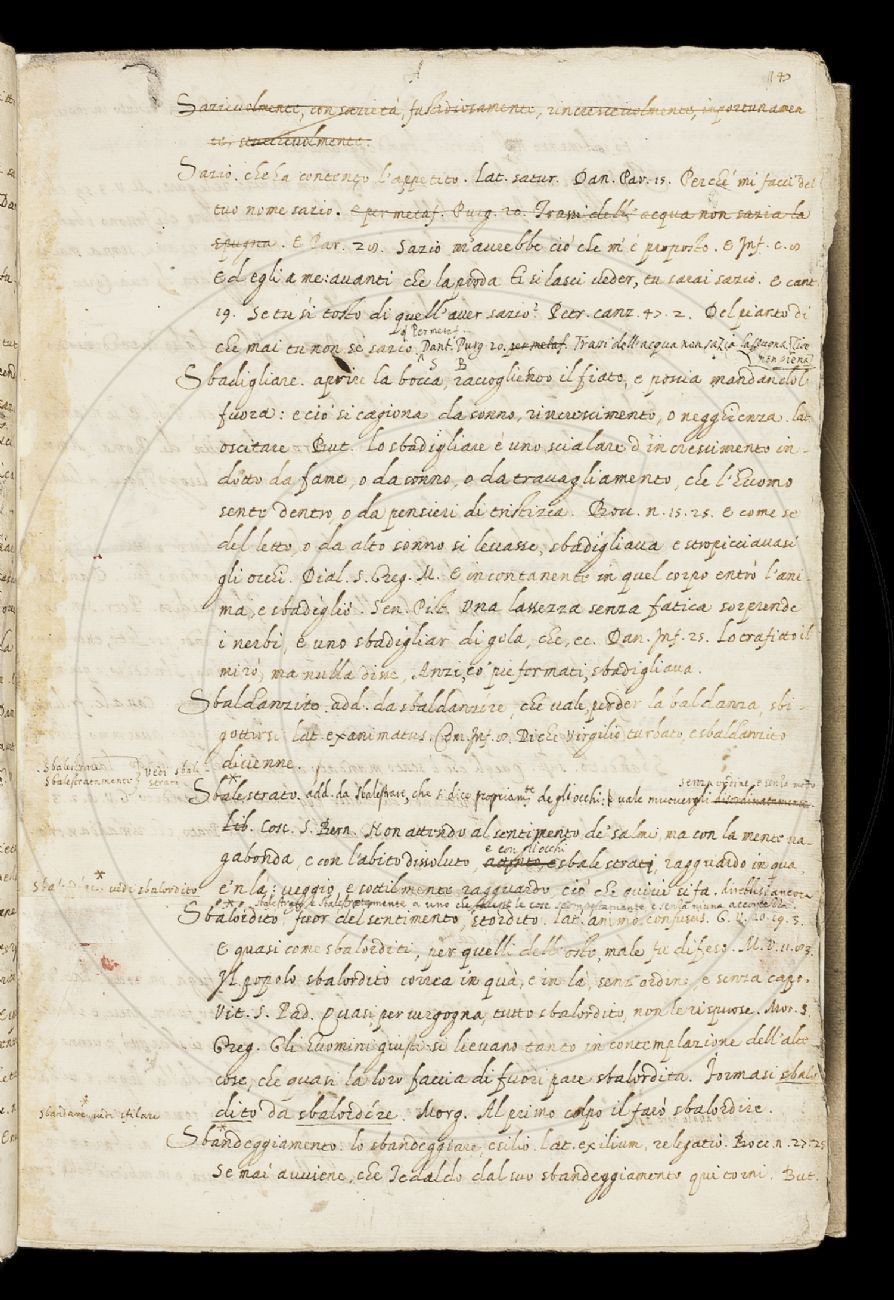 A
Sazievolmente, con sazietà, fastidiosamente, rincrescevolmente, importunamen
te, stucchevolmente.
Sazio. che ha contento l'appetito. lat. satur. Dan. Par. 15. Perchè mi facci del
tuo nome sazio. e per metaf. Purg. 20. Trassi dell' acqua non sazia la
spugna. E Par. Sazio m'avrebbe ciò che m'è proposto. E Inf. c.
Ed egli a me: avanti che la proda ti si lasci veder, tu sarai sazio. e cant.
19. Se tu sì tosto di quell'aver sazio? Petr. canz. 2. Del pianto di
Per metaf.
che mai tu non se sazio. Dant. Purg. 20. per metaf. Trassi dell'acqua non sazia la spugna. cioè
non piena
S B
Sbadigliare. aprire la bocca, raccogliendo il fiato, e poscia mandandol
fuora: e ciò si cagiona da sonno, rincrescimento, o negghienza. lat.
oscitare But. lo sbadigliare è uno scialare d'increscimento in-
dotto da fame, o da sonno, o da travagliamento, che l'huomo
sente dentro, o da pensieri di tristizia. Bocc. n. 15. 25. E come se
del letto, o da alto sonno si levasse, sbadigliava e stropicciavasi
gli occhi. Dial. S. Greg. M. E incontanente in quel corpo entrò l'ani-
ma, e sbadigliò. Sen. Pist. Una lassezza senza fatica sorprende
i nerbi, e uno sbadigliar di gola, che, ec. Dan. Inf. 25. Lo trafitto il
mirò, ma nulla disse, Anzi, co' piè fermati, sbadigliava.
Sbaldanzito. add. da sbaldanzire, che vale, perder la baldanza, sbi-
gottirsi. lat. examinatus. Com. Inf. Di che Virgilio turbato, e sbaldanzito
dicienne.
Sbalestrare
Sbalestratamente
Vedi sbale-
strato
senza ordine, e senza modo
Sbalestrato. add. da sbalestrare, che si dice propriamte degli occhi: e vale muovergli disordinatamente.
Lib. Cosc. S. Bern. Non attendo al sentimento de' salmi, ma con la mente va-
e con gli occhi
gabonda, e con l'abito dissoluto, e sbalestrati, ragguardo in qua,
Sbalordire* vedi sbalordito
e 'n là: veggio, e sottilmente ragguardo ciò che quivi si fa. direbbesi ancora
Sbalestrato e Sbalestratamente a uno che le cose
Sbalordito. fuor del sentimento, stordito. lat. animo confusus. G. V. 10. 19. 3.
E quasi come sbalorditi, per quelli dell'oste, male fu difeso. M. V. 11.
Il popolo sbalordito correa in quà, e in là, senz' ordine, e senza capo.
Vit. S. Pad. Quasi per vergogna, tutto sbalordito, non le rispuose. Mor. S.
Greg. Gli huomini giusti si lievano tanto in contemplazione dell'alte
cose, che quasi la loro faccia di fuori pare sbalordita. Formasi sbalo
Sbandare, vedi sfilare
dito da sbalordire. Morg. Al primo colpo il farò sbalordire.
Sbandeggiamento. lo sbandeggiare, esilio. lat. exilium, relegatio. Bocc. n. 27. 25
Se mai avviene, che Tedaldo dal suo sbandeggiamento qui torni. But.